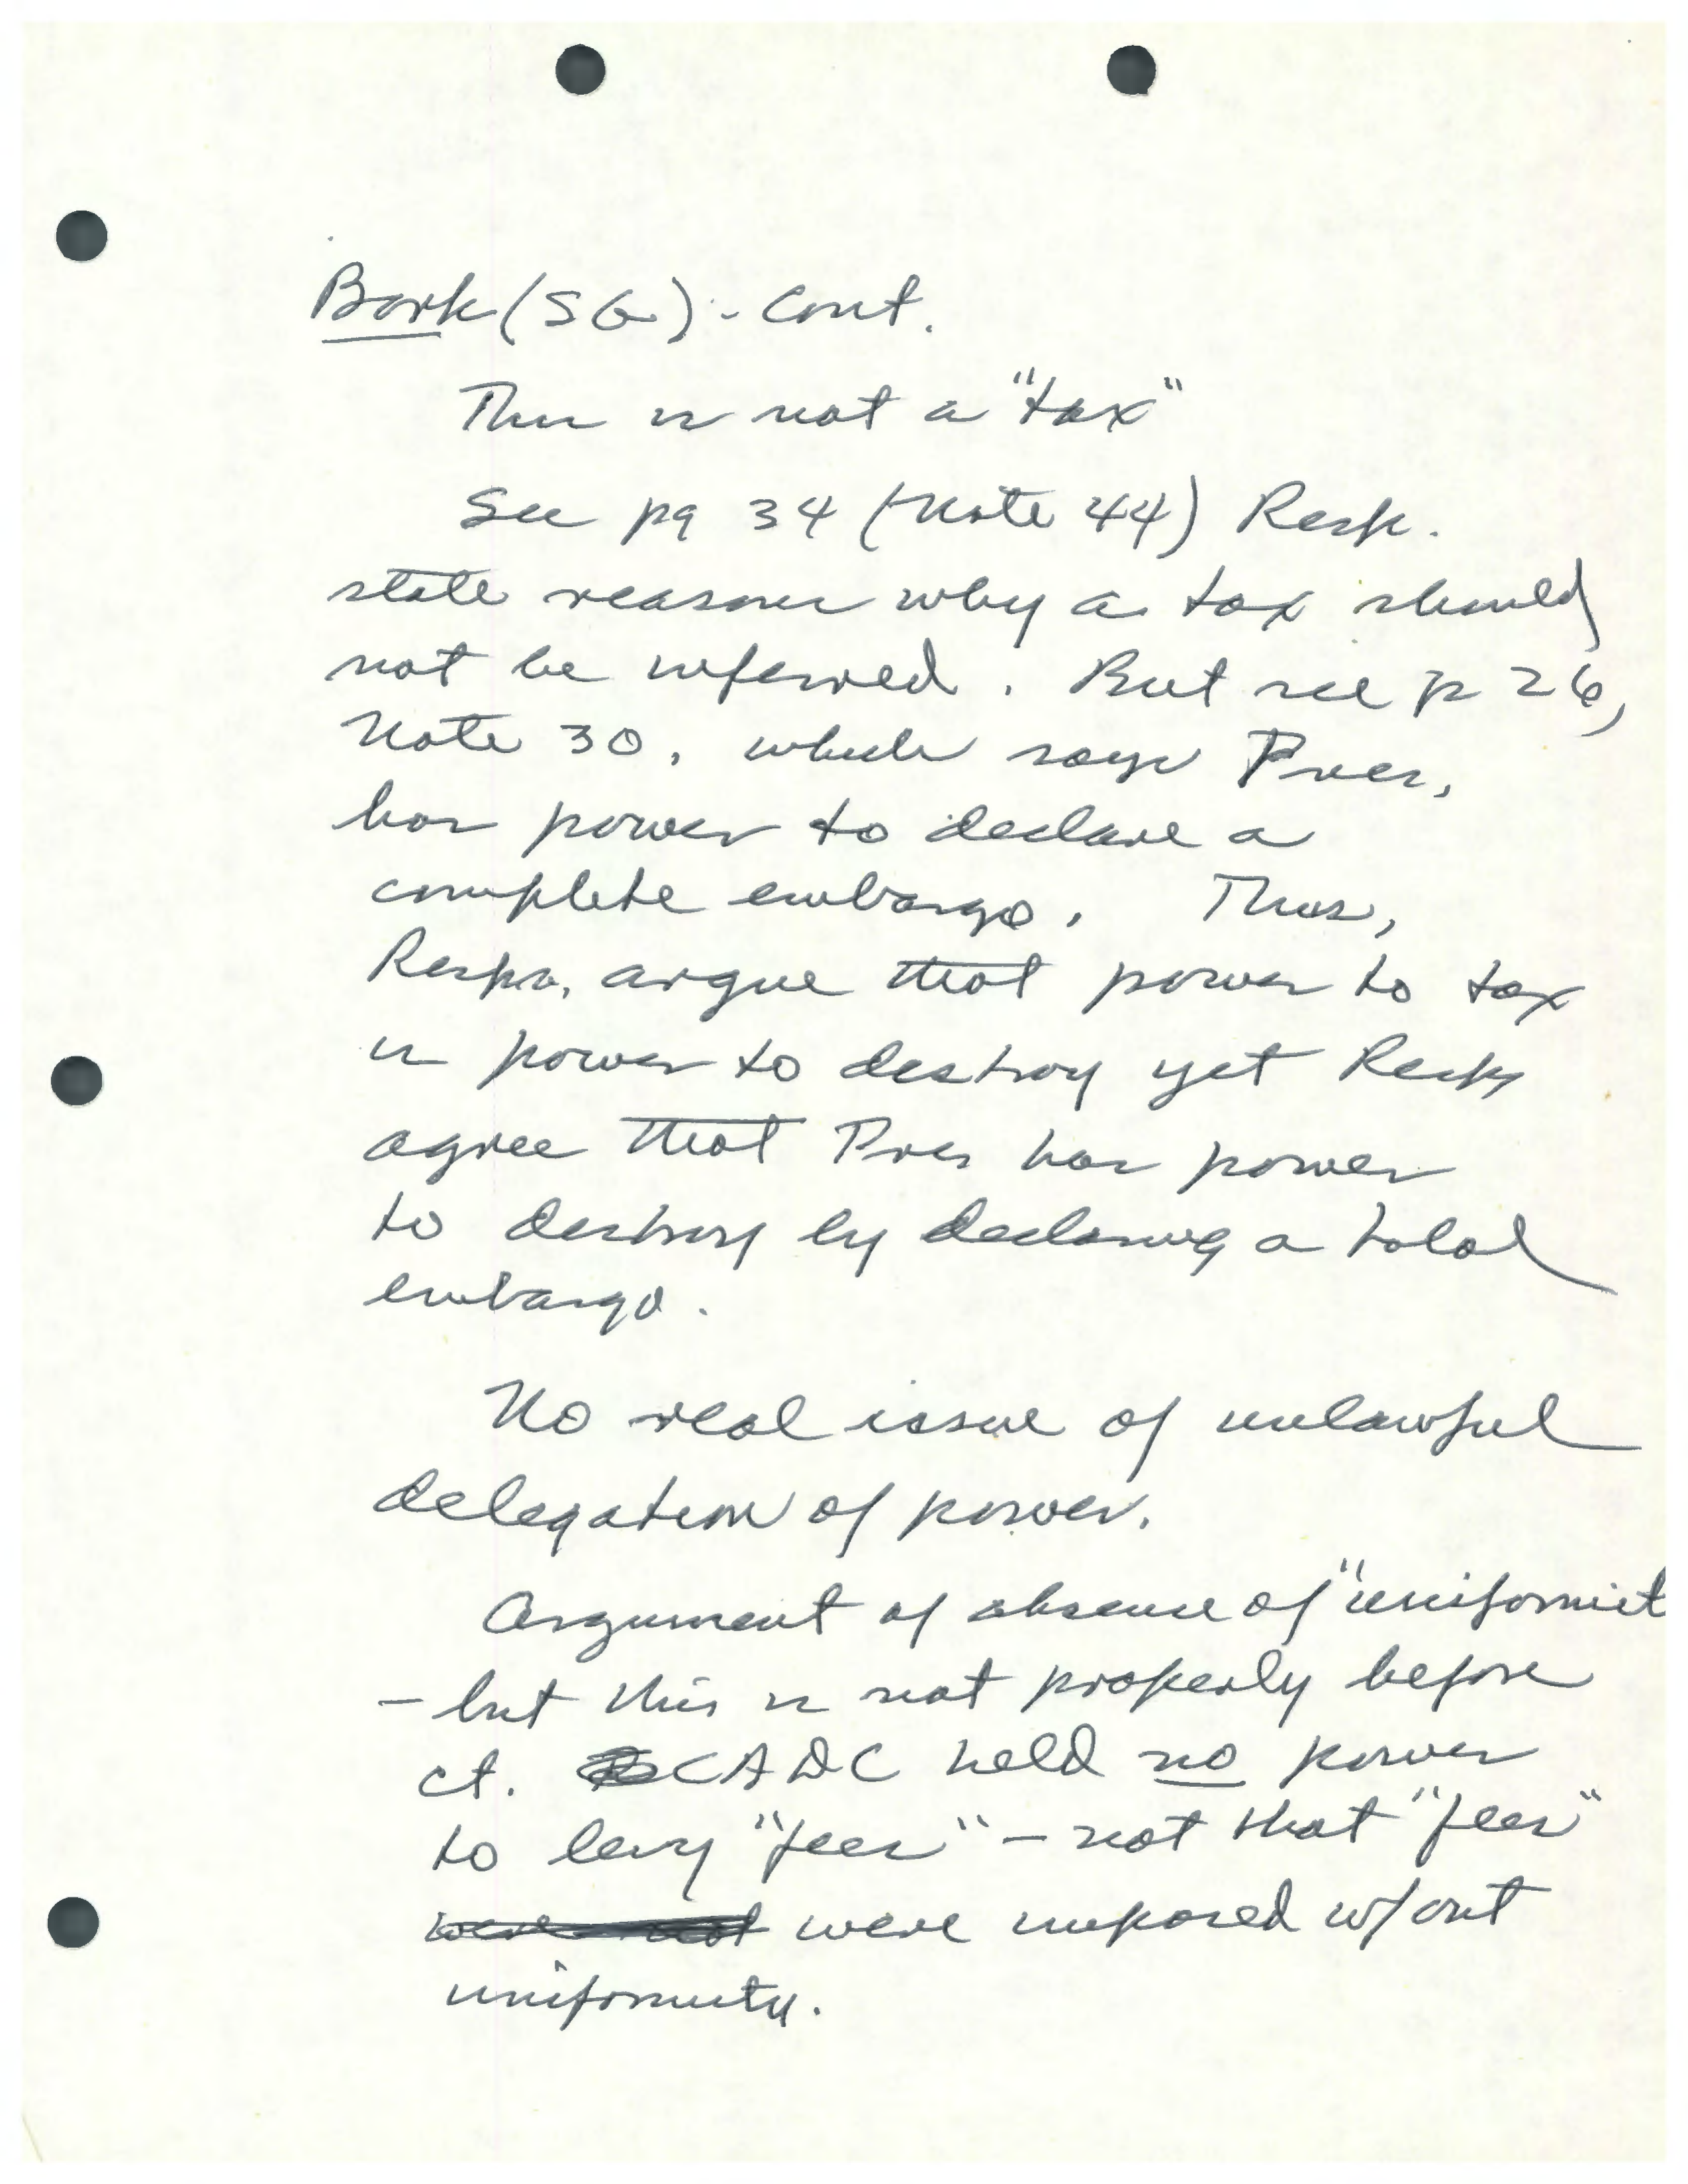 Bork (SG) - Cont.
This is not a "tax"
See pg 34 (Note 44) Resp.
state reasons why a tax should
not be inferred. But see p 26,
Note 30, which says Pres.
has power to declare a
complete embargo. Thus,
Resps. argue that power to tax
is power to destroy yet Resps
agree that Pres has power
to destroy by declaring a total
embargo.
No real issue of unlawful
delegation of power.
Argument of absence of "uniformit
- but this is not properly before
ct. CADC held no power
to levy "fees" - not that "fees"
were not were imposed w/out
uniformity.